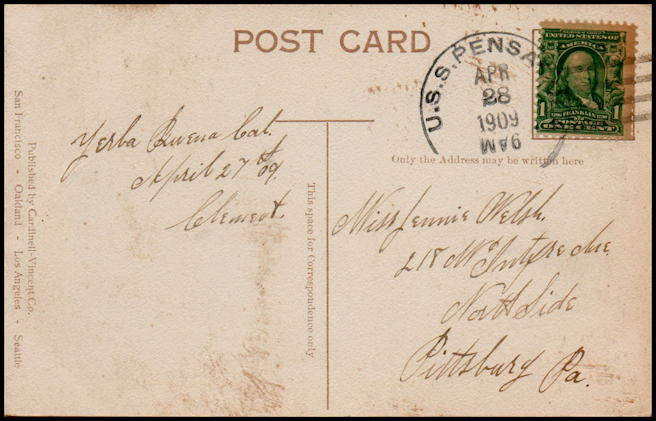 POST CARD
U.S.S. PENSA
APR
28
1909
9AM
SERIES 1902
UNITED STATES OF
AMERICA
1 FRANKLIN 1
POSTAGE
ONE CENT
Only the Address may be written here
Yerba Buena Cal.
April 27th 09.
Clement.
This space for Correspondence only
Miss Jennie Welsh.
218 McIntyre Ave.
North Side
Pittsburg Pa.
Published by Cardinell-Vincent Co.
San Francisco - Oakland - Los Angeles - Seattle